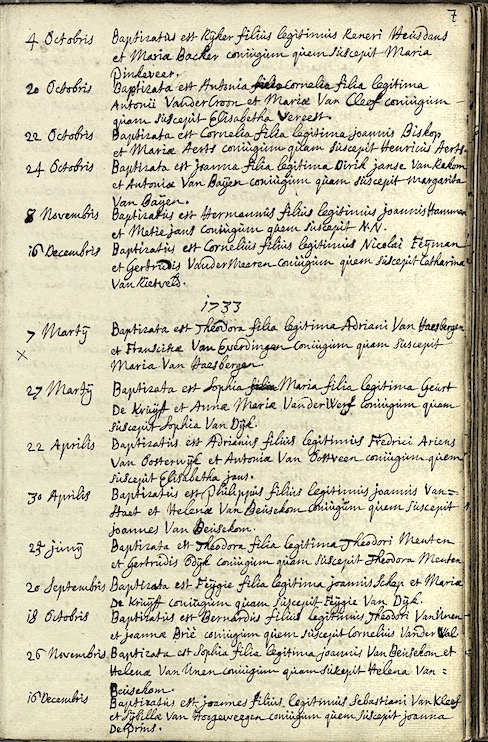 7
4 Octobris Baptizatus est Rijker filius legitimus Reneri Heusdans
et Maria Backer coniugum quem suscepit Maria
Dinkeveer.
20 Octobris Baptizata est Antonia Cornelia filia legitima
Antonii VanderCroon et Mariæ Van Cleef coniugum
quam suscepit Elisabetha Vereest.
22 Octobris Baptizata est Cornelia filia legitima joannis Biskop
et Mariæ Aerts coniugum quam suscepit Henricus Aerts.
24 Octobris Baptizata est joanna filia legitima Dirik janse Van
et Antoniæ Van Baijen coniugum quam suscepit margarita
Van Baijen.
8 Novembris Baptizatus est Hermannus filius legitimus joannis Hamman
et Metie jans coniugum quem suscepit N.N.
16 Decembris Baptizatus est Cornelius filius legitimus Nicolai Feijman
et Gertrudis VanderMeeren coniugum quem suscepit Catharina
Van Rietveld.
1733
7 Martij Baptizata est Theodora filia legitima Adriani Van Haesbergen
x et Franciscæ Van Everdingen coniugum quam suscepit
Maria Van Haesbergen.
27 Martij Baptizata est Sophia Maria filia legitima Geurt
De Kruijff et Annæ Mariæ VanderWerf coniugum quam
suscepit Sophia Van Dijk.
22 Aprilis Baptizatus est Adrianus filius legitimus Fredrici Ariens
Van Oosterwijk et Antoniæ Van Oostveen coniugum quem
suscepit Elisabetha jans.
30 Aprilis Baptizatus est philippus filius legitimus joannis Van=
Haet et Helenæ Van Beusekom coniugum quem suscepit
joannes Van Beusekom.
junij Baptizata est Theodora filia legitima Theodori Menten
et Gertrudis Odijk coniugum quam suscepit Theodora Menten
20 Septembris Baptizata est Feijgie filia legitima joannis Schap et Mariæ
De Kruijff coniugum quam suscepit Feijgie Van Dijk.
18 Octobris Baptizatus est Bernardus filius legitimus Theodori VanUnen
et joannæ Brie coniugum quem suscepit Cornelius Vander Wal
26 Novembris Baptizata est Sophia filia legitima joannis Van Beusekom et
Helenæ Van Unen coniugum quam suscepit Helena Van=
Beusekom.
16 Decembris Baptizatus est joannes filius legitimus Sebastiani Van Kleef
et Sÿbillæ Van Hoogeweegen coniugum quem suscepit joanna
DePrins.